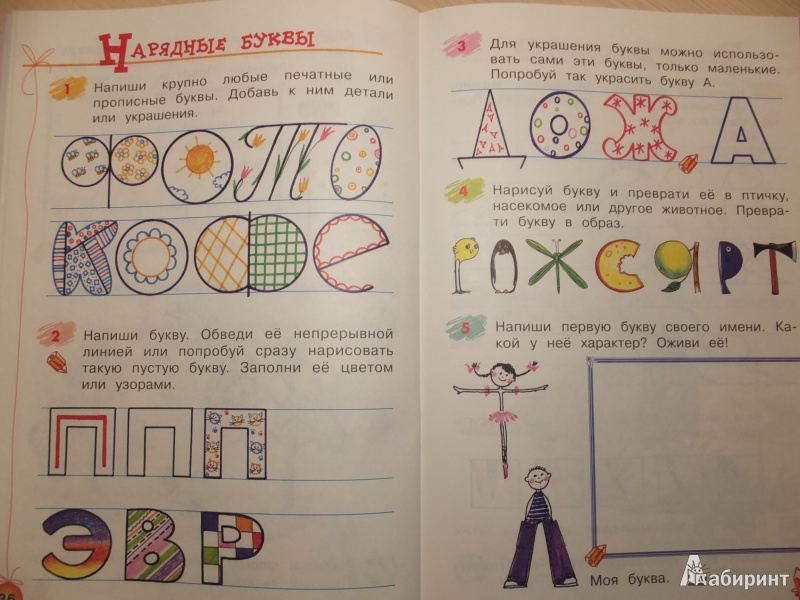 НАРЯДНЫЕ БУКВЫ
1 Напиши крупно любые печатные или
прописные буквы. Добавь к ним детали
или украшения.
ФОТО
КОФЕ
2 Напиши букву. Обведи её непрерывной
линией или попробуй сразу нарисовать
такую пустую букву. Заполни её цветом
или узорами.
П П П
Э В Р
36
3 Для украшения буквы можно использо-
вать сами эти буквы, только маленькие.
Попробуй так украсить букву А.
Д О Ж А
4 Нарисуй букву и преврати её в птичку,
насекомое или другое животное. Преврa-
ти букву в образ.
Р О Ж С Я Р Т
5 Напиши первую букву своего имени. Ка-
кой у неё характер? Оживи её!
Моя буква.
Лабиринт